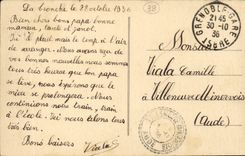 La Tronche le 29 octobre 1936
Bien chers bons papa bonne
maman, tante et
Ici il plait mais le temps a l'air
de s'arranger. Nous avons reçu de
vos bonnes nouvelles nous sommes
tous très heureux que bon papa
se lève, nous espérons que le
mieux se prolongera. Nous
continuons notre train, train
à l'école. Ici nous allons tous
très bien.
Bons baisers
GRENOBLE-GARE
21 45
30 - 10
36
ISERE
Monsieur
Viala Camille
à
Villeneuve Minervois
(Aude)